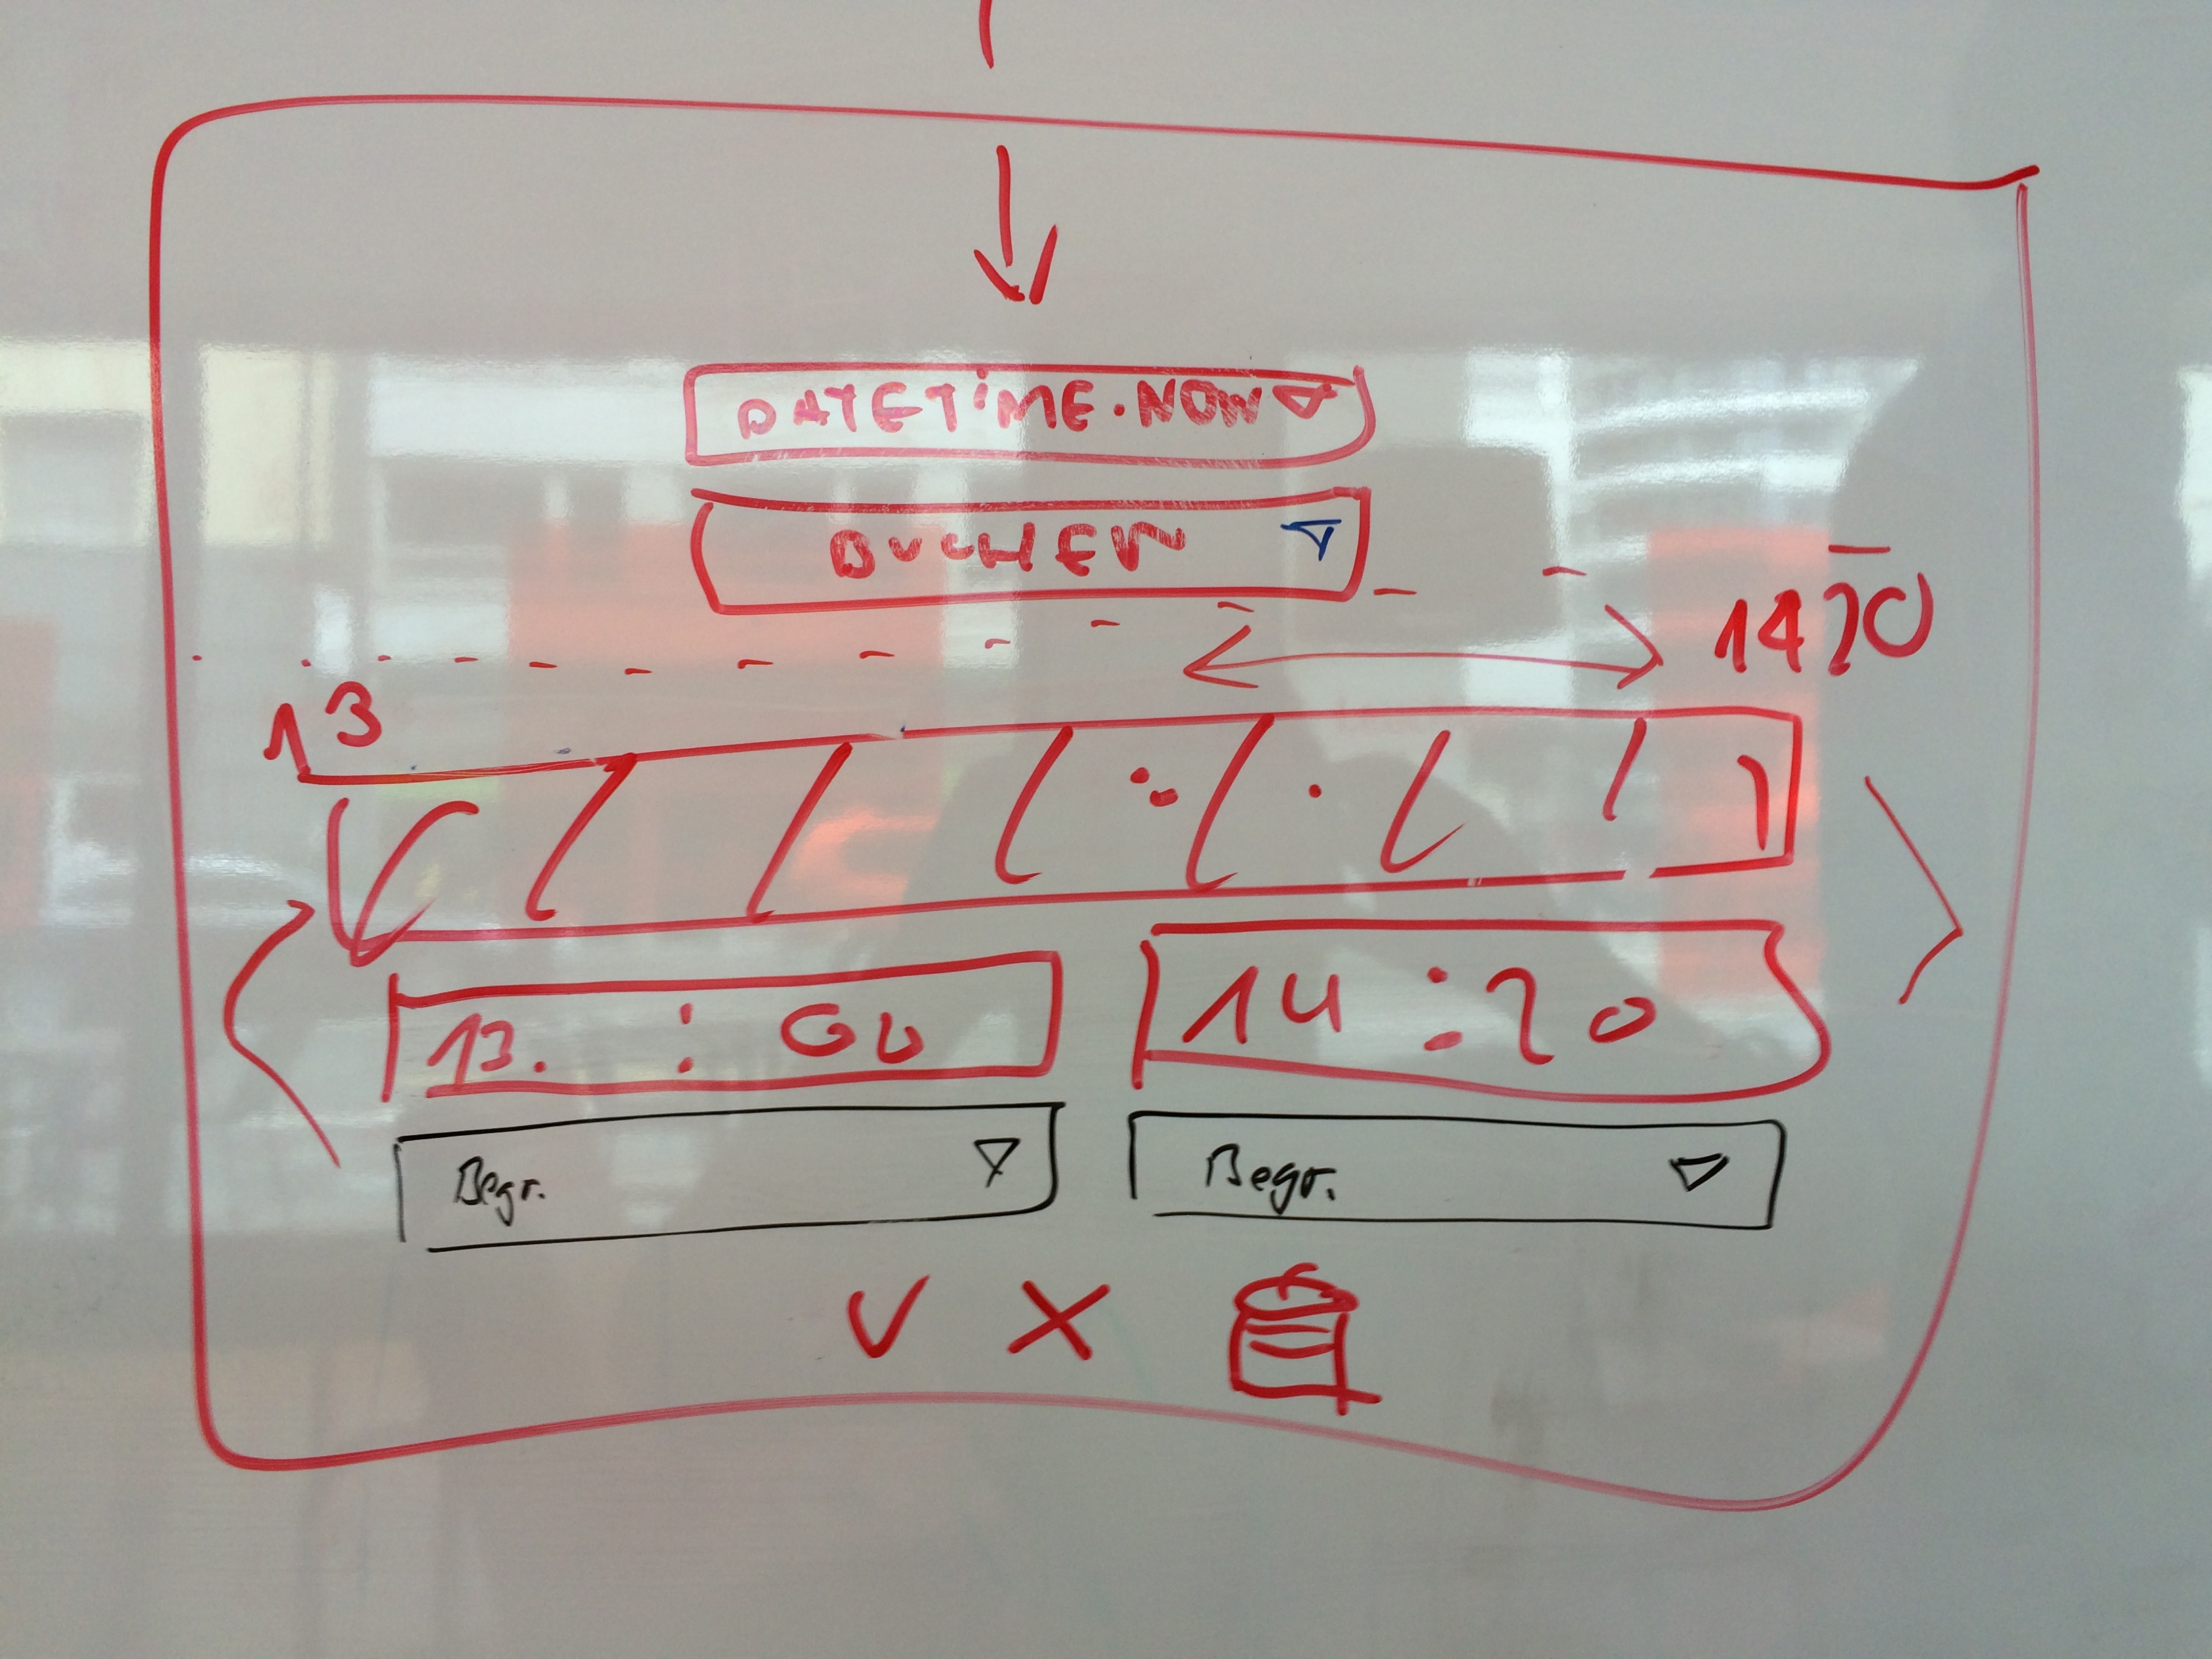 DATETIME.NOW
BUCHEN
1420
13
13. : 00
14 : 20
Begr.
Begr.